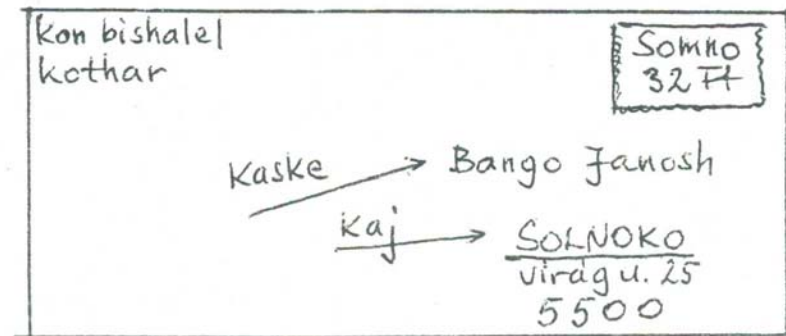 Kon bishalel
kothar
Somno
32 Ft
Kaske
Bango Janosh
Kaj
SOLNOKO
virág u. 25
5500